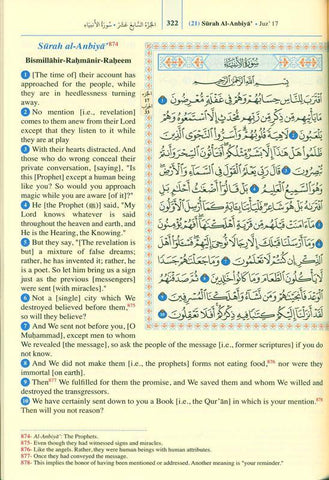 الجزء السابع عشر - سورة الأنبياء
322
(21) Sūrah Al-Anbiyā’ - Juz’ 17
Sūrah al-Anbiyā’874
Bismillāhir-Raḥmānir-Raḥeem
1 [The time of] their account has
approached for the people, while
they are in heedlessness turning
away.
2 No mention [i.e., revelation]
comes to them anew from their Lord
except that they listen to it while
they are at play
3 With their hearts distracted. And
those who do wrong conceal their
private conversation, [saying], "Is
this [Prophet] except a human being
like you? So would you approach
magic while you are aware [of it]?"
4 He [the Prophet (ﷺ)] said, "My
Lord knows whatever is said
throughout the heaven and earth, and
He is the Hearing, the Knowing."
5 But they say, "[The revelation is
but] a mixture of false dreams;
rather, he has invented it; rather, he
is a poet. So let him bring us a sign
just as the previous [messengers]
were sent [with miracles]."
6 Not a [single] city which We
destroyed believed before them,875
so will they believe?
7 And We sent not before you, [O
Muḥammad], except men to whom
We revealed [the message], so ask the people of the message [i.e., former scriptures] if you do
not know.
8 And We did not make them [i.e., the prophets] forms not eating food,876 nor were they
immortal [on earth].
9 Then877 We fulfilled for them the promise, and We saved them and whom We willed and
destroyed the transgressors.
10 We have certainly sent down to you a Book [i.e., the Qur’ān] in which is your mention.878
Then will you not reason?
سُورَةُ الأَنبِيَاءِ
بِسْمِ اللَّهِ الرَّحْمَٰنِ الرَّحِيمِ
اقْتَرَبَ لِلنَّاسِ حِسَابُهُمْ وَهُمْ فِي غَفْلَةٍ مُّعْرِضُونَ 1
مَا يَأْتِيهِم مِّن ذِكْرٍ مِّن رَّبِّهِم مُّحْدَثٍ إِلَّا اسْتَمَعُوهُ
وَهُمْ يَلْعَبُونَ 2 لَاهِيَةً قُلُوبُهُمْ وَأَسَرُّوا النَّجْوَى الَّذِينَ
ظَلَمُوا هَلْ هَٰذَا إِلَّا بَشَرٌ مِّثْلُكُمْ أَفَتَأْتُونَ السِّحْرَ وَأَنتُمْ
تُبْصِرُونَ 3 قَالَ رَبِّي يَعْلَمُ الْقَوْلَ فِي السَّمَاءِ وَالْأَرْضِ
وَهُوَ السَّمِيعُ الْعَلِيمُ 4 بَلْ قَالُوا أَضْغَاثُ أَحْلَامٍ بَلِ
افْتَرَاهُ بَلْ هُوَ شَاعِرٌ فَلْيَأْتِنَا بِآيَةٍ كَمَا أُرْسِلَ الْأَوَّلُونَ 5
مَا آمَنَتْ قَبْلَهُم مِّن قَرْيَةٍ أَهْلَكْنَاهَا أَفَهُمْ يُؤْمِنُونَ 6
وَمَا أَرْسَلْنَا قَبْلَكَ إِلَّا رِجَالًا نُّوحِي إِلَيْهِمْ فَاسْأَلُوا
أَهْلَ الذِّكْرِ إِن كُنتُمْ لَا تَعْلَمُونَ 7 وَمَا جَعَلْنَاهُمْ جَسَدًا
لَّا يَأْكُلُونَ الطَّعَامَ وَمَا كَانُوا خَالِدِينَ 8 ثُمَّ صَدَقْنَاهُمُ
الْوَعْدَ فَأَنجَيْنَاهُمْ وَمَن نَّشَاءُ وَأَهْلَكْنَا الْمُسْرِفِينَ 9
لَقَدْ أَنزَلْنَا إِلَيْكُمْ كِتَابًا فِيهِ ذِكْرُكُمْ أَفَلَا تَعْقِلُونَ 10
874- Al-Anbiyā’: The Prophets.
875- Even though they had witnessed signs and miracles.
876- Like the angels. Rather, they were human beings with human attributes.
877- Once they had conveyed the message.
878- This implies the honor of having been mentioned or addressed. Another meaning is "your reminder."